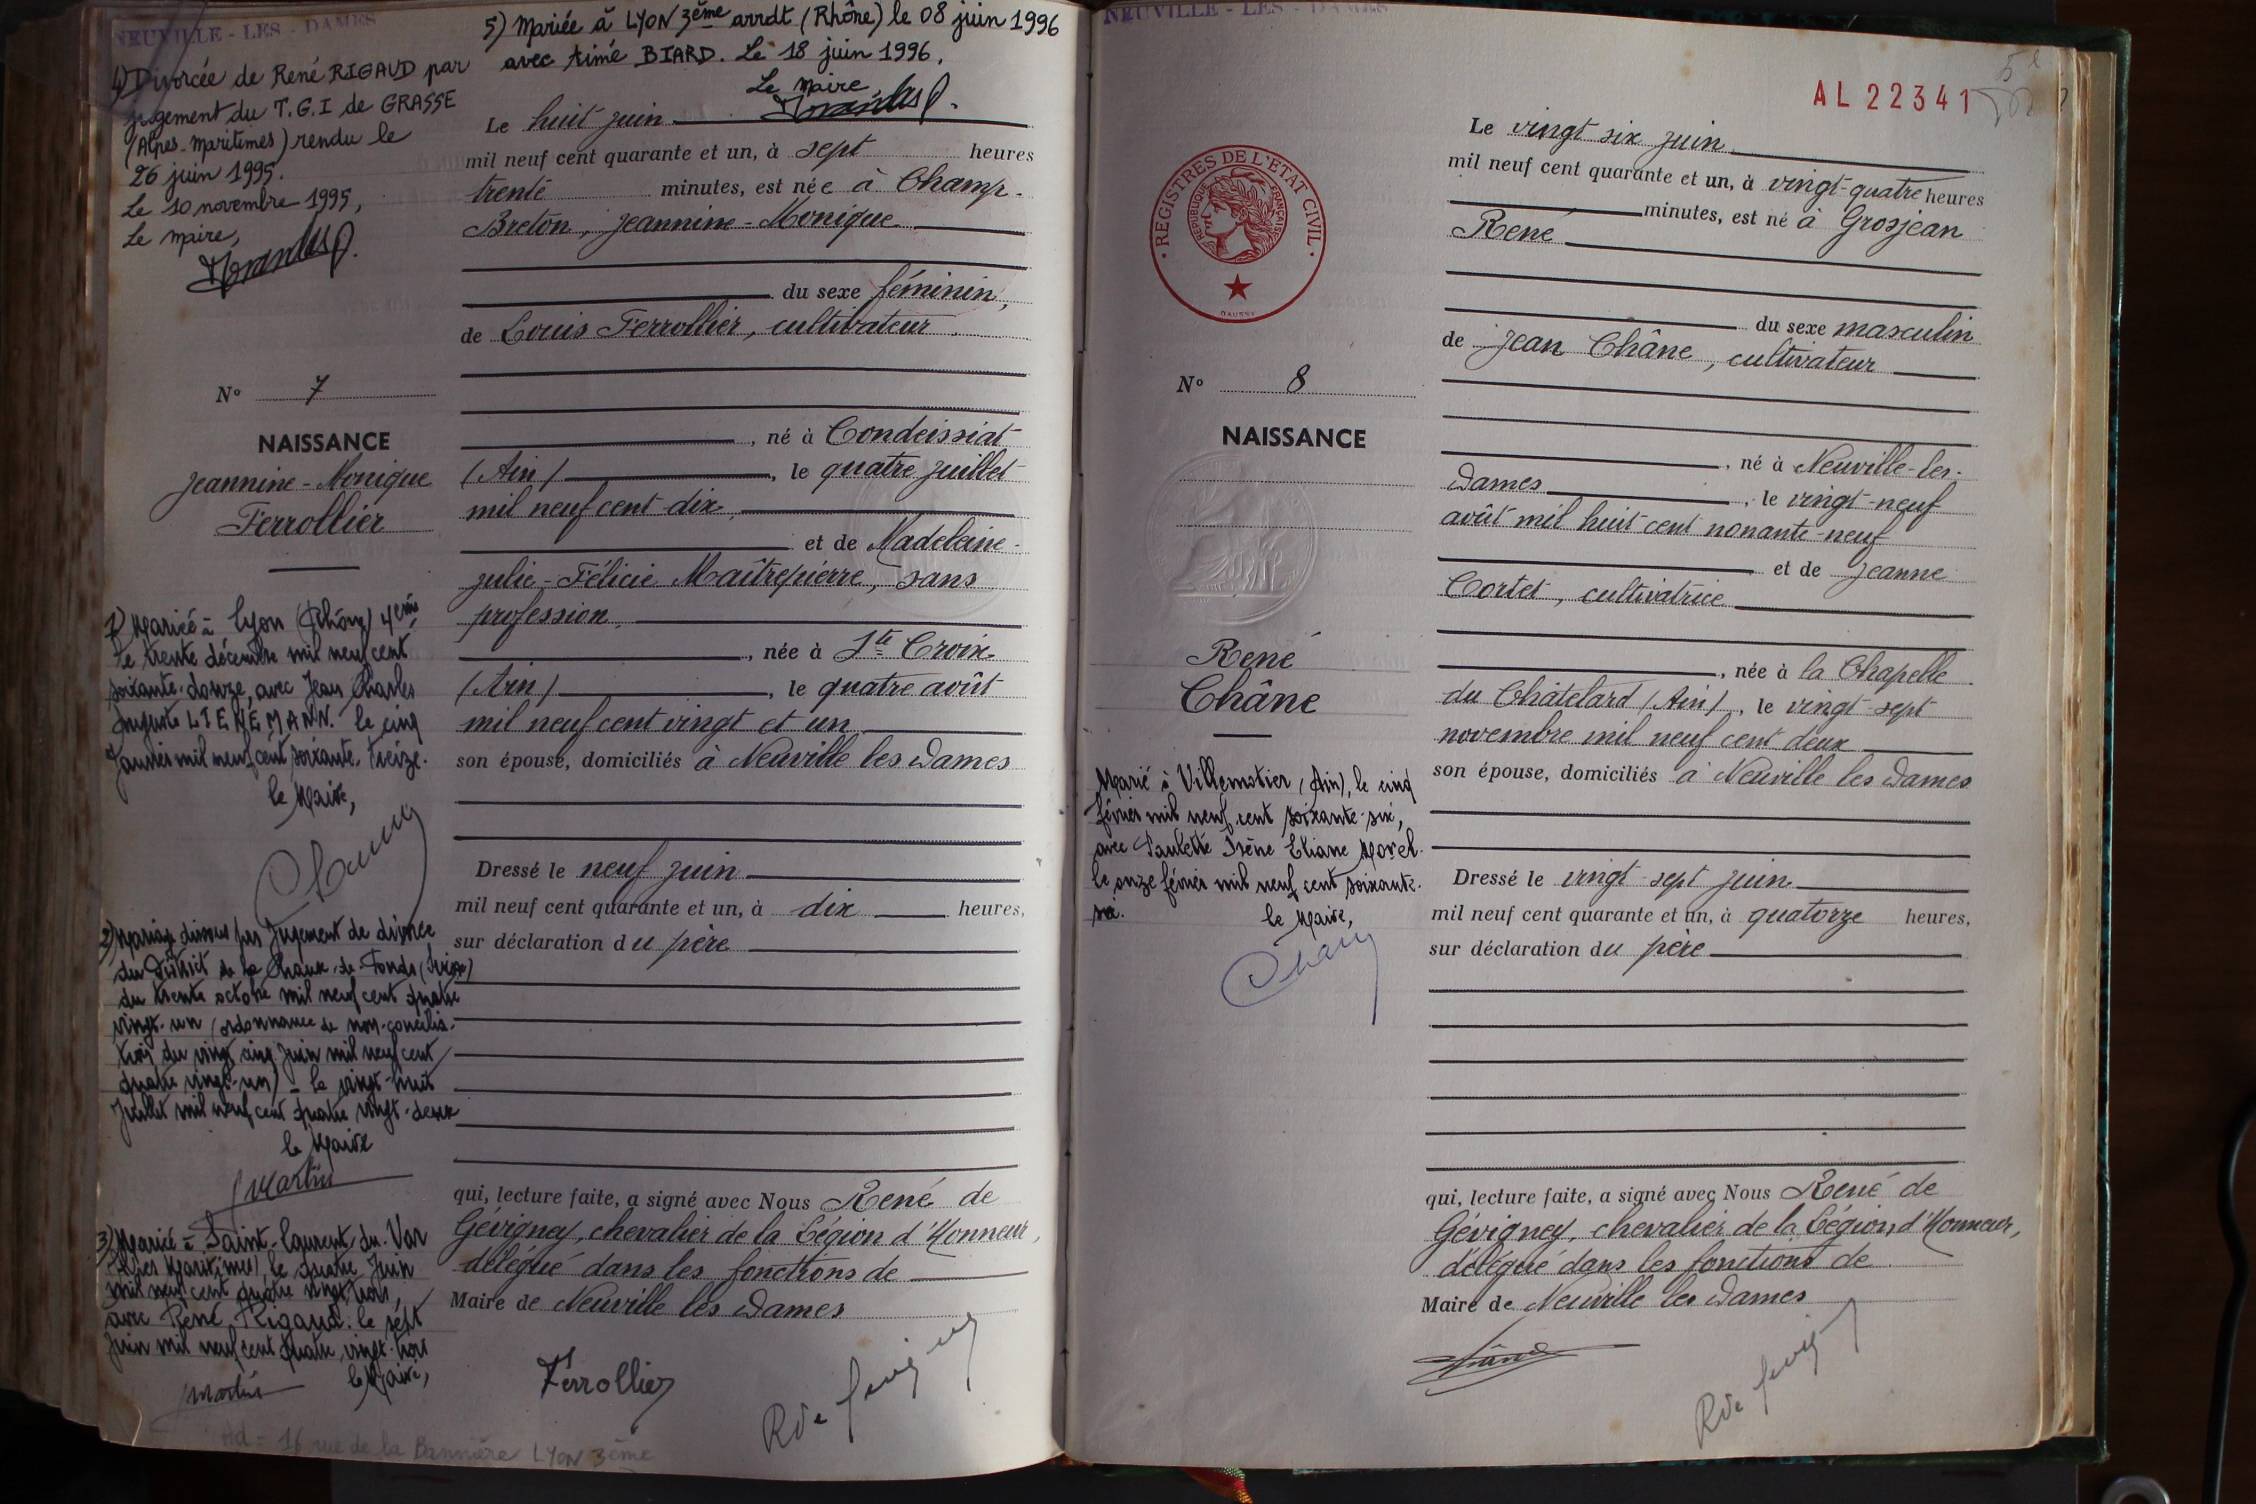 NEUVILLE - LES - DAMES
4) Divorcée de René RIGAUD par
jugement du T.G.I de GRASSE
(Alpes-Maritimes) rendu le
26 juin 1995.
Le 10 novembre 1995,
Le Maire,
N° 7
NAISSANCE
Jeannine-Monique
Ferrollier
1) Mariée à Lyon (Rhône) 4ème
le trente décembre mil neuf cent
soixante-douze, avec Jean Charles
Auguste LIENEMANN. le cinq
Janvier mil neuf cent soixante-treize.
le Maire,
2) Mariage dissous par Jugement de divorce
du District de la Chaux-de-Fonds (Suisse)
du trente octobre mil neuf cent quatre
vingt-un (ordonnance de non-concilia-
tion du vingt cinq juin mil neuf cent
quatre vingt-un) - le vingt-huit
Juillet mil neuf cent quatre vingt-deux
le Maire
Martin
3) Mariée à Saint-Laurent-du-Var
(Alpes Maritimes) le quatre Juin
mil neuf cent quatre vingt trois,
avec René Rigaud. le sept
Juin mil neuf cent quatre vingt-trois
le Maire,
Martin
Ad = 16 rue de la Bannière LYON 3ème
5) Mariée à LYON 3ème arrdt (Rhône) le 08 juin 1996
avec Aimé BIARD. Le 18 juin 1996.
Le Maire,
Le huit juin
mil neuf cent quarante et un, à sept heures
trente minutes, est née à Champ-
Breton, Jeannine-Monique
du sexe féminin,
de Louis Ferrollier, cultivateur
, né à Condeissiat
(Ain), le quatre juillet
mil neuf cent dix
et de Madeleine-
Julie-Félicie Maîtrepierre, sans
profession
, née à Ste Croix
(Ain), le quatre août
mil neuf cent vingt et un
son épouse, domiciliés à Neuville les Dames
Dressé le neuf juin
mil neuf cent quarante et un, à dix heures,
sur déclaration du père
qui, lecture faite, a signé avec Nous René de
Gévigney, chevalier de la Légion d'Honneur,
délégué dans les fonctions de
Maire de Neuville les Dames
Ferrollier
R de Gevigney
NEUVILLE - LES - DAMES
AL 22341
REGISTRES DE L'ETAT CIVIL
REPUBLIQUE FRANÇAISE
DAUSSY
N° 8
NAISSANCE
René
Châne
Marié à Villemotier (Ain), le cinq
février mil neuf cent soixante-six,
avec Paulette Irène Eliane Morel.
le onze février mil neuf cent soixante-
six.
le Maire,
Le vingt six juin
mil neuf cent quarante et un, à vingt-quatre heures
minutes, est né à Grosjean
René
du sexe masculin
de Jean Châne, cultivateur
, né à Neuville-les-
Dames, le vingt-neuf
août mil huit cent nonante-neuf
et de Jeanne
Cortet, cultivatrice
, née à la Chapelle
du Châtelard (Ain), le vingt-sept
novembre mil neuf cent deux
son épouse, domiciliés à Neuville les Dames
Dressé le vingt-sept juin
mil neuf cent quarante et un, à quatorze heures,
sur déclaration du père
qui, lecture faite, a signé avec Nous René de
Gévigney, chevalier de la Légion d'Honneur,
délégué dans les fonctions de
Maire de Neuville les Dames
Châne
R de Gevigney